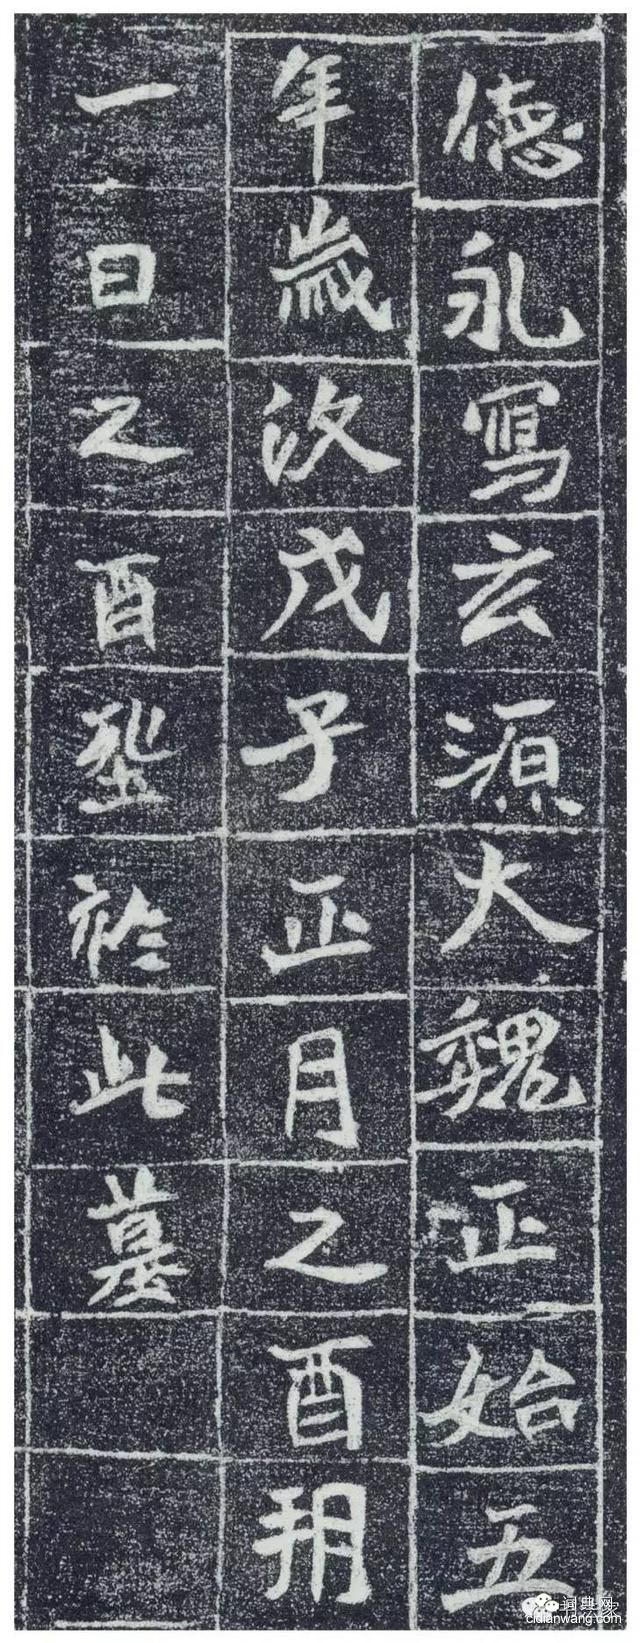 德永寫玄源大魏正始五
年歲次戊子正月之酉朔
一日之酉於此墓
词典网
cidianwang.com